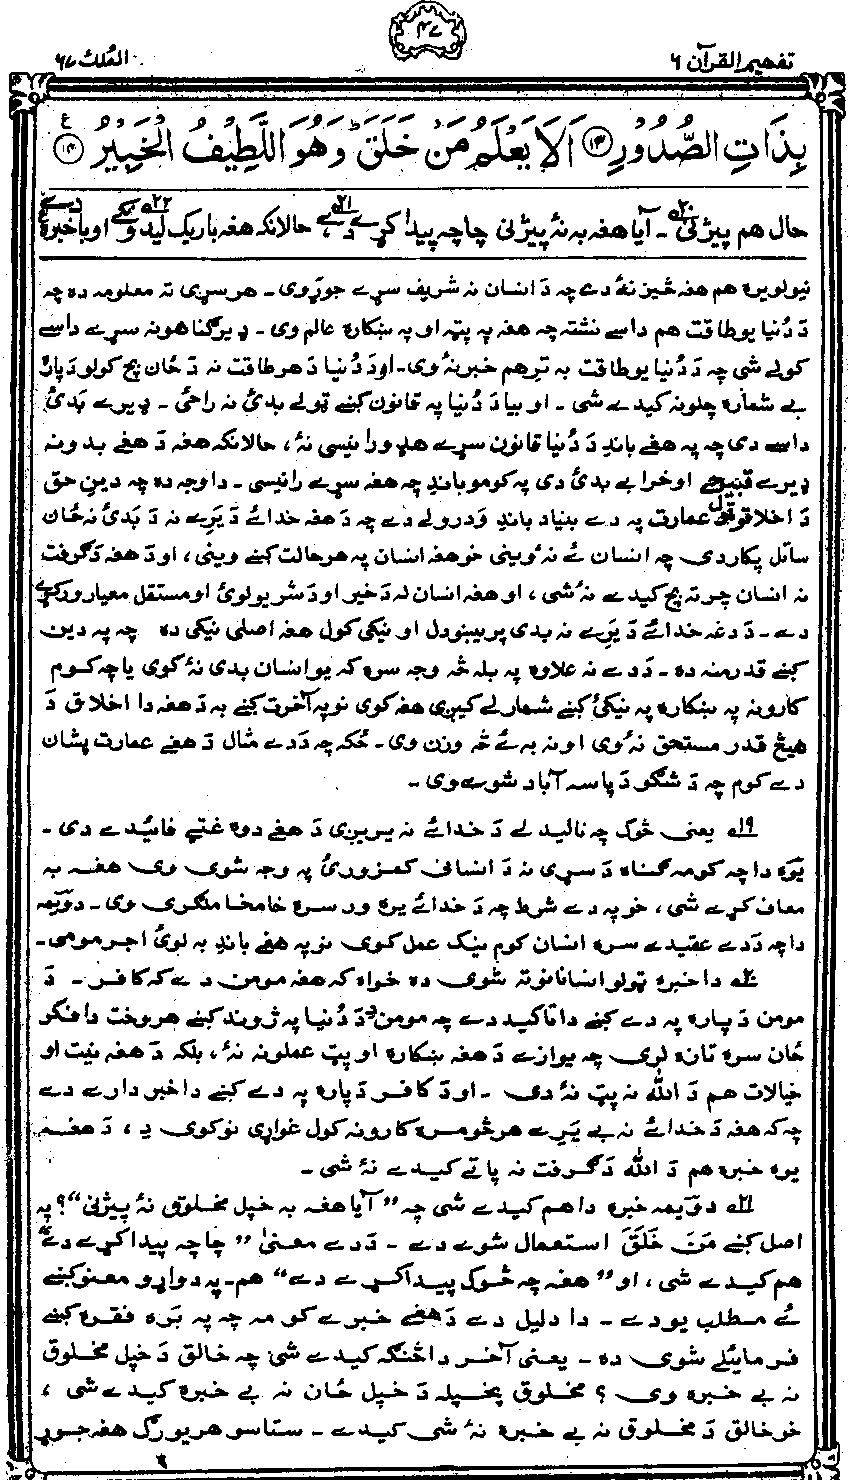 تفهيم القرآن ۶
۴۷
الملك ۶۷
بِذَاتِ الصُّدُوْرِ ﴿۱۳﴾ اَلَا يَعْلَمُ مَنْ خَلَقَ ؕ وَهُوَ اللَّطِيْفُ الْخَبِيْرُ ﴿۱۴﴾ ع
حال هم پيژنی ۲۰ـ آيا هغه به نۀ پيژنی چا چه پيدا کړے دے ۲۱، حالانکه هغه باريک ليدونکے ۲۲ او باخبره دے
نيولويره هم هغه څيز نۀ دے چه دَ انسان نه شريف سړے جوړوی ـ هر سړی ته معلومه ده چه
دَ دُنيا يو طاقت هم داسے نشته چه هغه په پټه او په ښکاره عالم وی ـ ډير ګناهونه سړے داسے
کولے شی چه دَ دُنيا يو طاقت به ترهم خبر نۀ وی ـ او دَ دُنيا دَ هر طاقت نه دَ ځان بچ کولو دَ پاره
بے شماره چلونه کيدے شی ـ او بيا دَ دُنيا په قانون کښے ټولے بدیٔ نه راځی ـ ډيرے بَدیٔ
داسے دی چه په هغے باندِ دَ دُنيا قانون سړے هډو رانيسی نۀ، حالانکه هغه دَ هغے بدونه
ډيرے قبيح او خرابے بدیٔ دی په کومو باندِ چه هغه سړے رانيسی ـ دا وجه ده چه دينِ حق
دَ اخلاقو عمارت په دے بنياد باندِ ودرولے دے چه دَ هغه خدائے دَ يَرے نه دَ بَدیٔ نه ځان
ساتل پکار دی چه انسان ئے نۀ وينی خو هغه انسان په هر حالت کښے وينی، او دَ هغه دَ ګرفت
نه انسان چرته بچ کيدے نۀ شی، او هغه انسان له دَ خير او دَ شر يو لوئ او مستقل معيار ورکړے
دے ـ دَ دغه خدائے دَ يَرے نه بدی پريښودل او نيکی کول هغه اصلی نيکی ده چه په دين
کښے قدرمنه ده ـ دَ دے نه علاوه په بله څه وجه سره که يو انسان بدی نۀ کوی يا چه کوم
کارونه په ښکاره په نيکیٔ کښے شمارلے کيږی هغه کوی نو په آخرت کښے به دَ هغه دا اخلاق دَ
هيڅ قدر مستحق نۀ وی او نه به ئے څه وزن وی ـ ځکه چه دَ دے مثال دَ هغے عمارت پشان
دے کوم چه دَ شګو دَ پاسه آباد شوے وی ـ
۱۹ـ يعنی څوک چه ناليدلے دَ خدائے نه يريږی دَ هغے دوه غټے فائيدے دی ـ
يَوه دا چه کومه ګناه دَ سړی نه دَ انسانی کمزوریٔ په وجه شوی وی هغه به
معاف کړے شی، خو په دے شرط چه دَ خدائے يره ورسره خامخا ملګری وی ـ دوَيمه
دا چه دَ دے عقيدے سره انسان کوم نيک عمل کوی نو په هغے باندِ به لوئ اجر مومی ـ
۲۰ـ دا خبره ټولو انسانانو ته شوی ده خواه که هغه مومن دے که کافر ـ دَ
مومن دَ پاره په دے کښے دا تاکيد دے چه مومن دِ دَ دُنيا په ژوند کښے هر وخت دا فکر
ځان سره تازه لری چه يوازے دَ هغه ښکاره او پټ عملونه نۀ، بلکه دَ هغه نيت او
خيالات هم دَ اللّٰه نه پټ نۀ دی ـ او دَ کافر دَ پاره په دے کښے دا خبردارے دے
چه که هغه دَ خدائے نه بے يَرے هر څومره کارونه کول غواړی نو کوی دِ، دَ هغه
يوه خبره هم دَ اللّٰه دَ ګرفت نه پاتے کيدے نۀ شی ـ
۲۱ـ دوَيمه خبره دا هم کيدے شی چه ”آيا هغه به خپل مخلوق نۀ پيژنی“؟ په
اصل کښے مَنْ خَلَقَ استعمال شوے دے ـ دَ دے معنیٰ ”چا چه پيدا کړے دے“
هم کيدے شی، او ”هغه چه څوک پيدا کړے دے“ هم ـ په دواړو معنو کښے
ئے مطلب يو دے ـ دا دليل دے دَ هغے خبرے کومه چه په بَره فقره کښے
فرمائيلے شوی ده ـ يعنی آخر دا څنګه کيدے شی چه خالق دَ خپل مخلوق
نه بے خبره وی؟ مخلوق پخپله دَ خپل ځان نه بے خبره کيدے شی،
خو خالق دَ مخلوق نه بے خبره نۀ شی کيدے ـ ستاسو هر يو رګ هغه جوړ